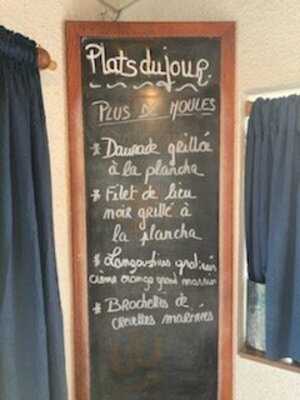 Plats du jour.
PLUS DE MOULES
* Daurade grillée
à la plancha
* Filet de lieu
noir grillé à
la plancha
* Langoustines gratinées
crème orange grand marnier
* Brochettes de
crevettes marinées